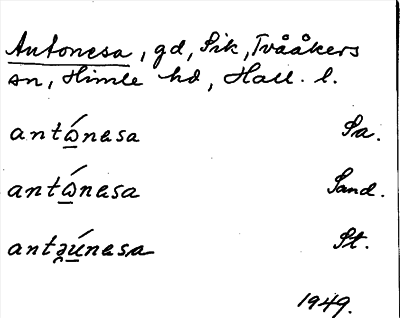 Antonesa, gd, Sik, Tvååkers
sn, Himle hd, Hall. l.
antɷ̲́nesa Sa.
antɷ̲́nesa Sand.
antꝫú̲nesa St.
1949.